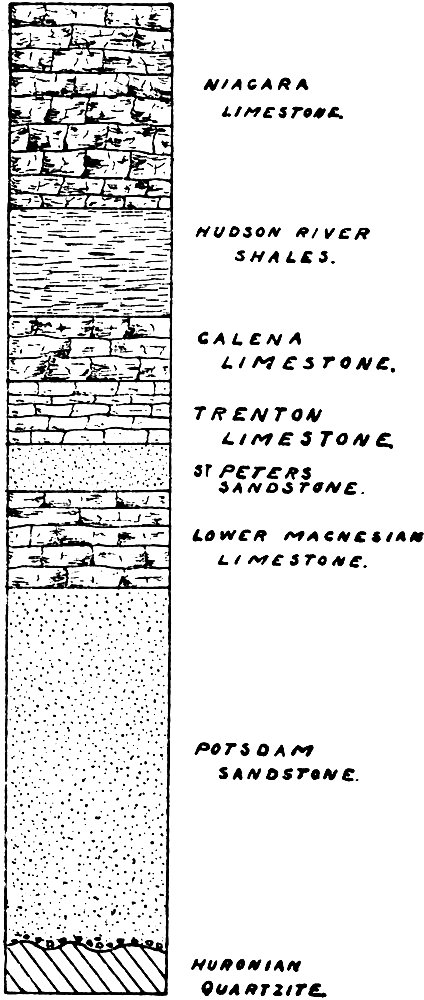 NIAGARA
LIMESTONE.
HUDSON RIVER
SHALES.
GALENA
LIMESTONE.
TRENTON
LIMESTONE.
ST PETERS
SANDSTONE.
LOWER MAGNESIAN
LIMESTONE.
POTSDAM
SANDSTONE.
HURONIAN
QUARTZITE.